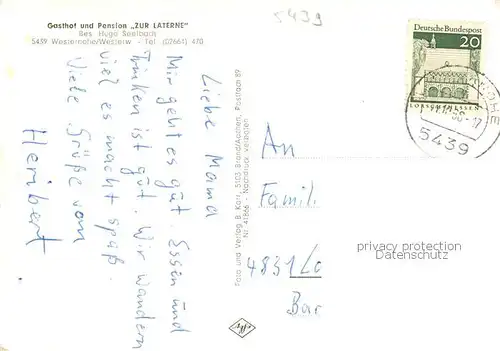 Gasthof und Pension „ZUR LATERNE"
Bes. Hugo Seelbach
5439 Westernohe/Westerw - Tel (02664) 470
5439
Deutsche Bundespost
20
LORSCH/HESSEN
5439
Liebe Mama
Mir geht es gut. Essen und
Trinken ist gut. Wir wandern
viel es macht spaß.
Viele Grüße vom
Heribert
Foto und Verlag B. Korr, 5103 Brand/Aachen, Postfach 89
Nr. 41866 - Nachdruck verboten
An
Famil.
4831 Lo
Bar
privacy protection
Datenschutz